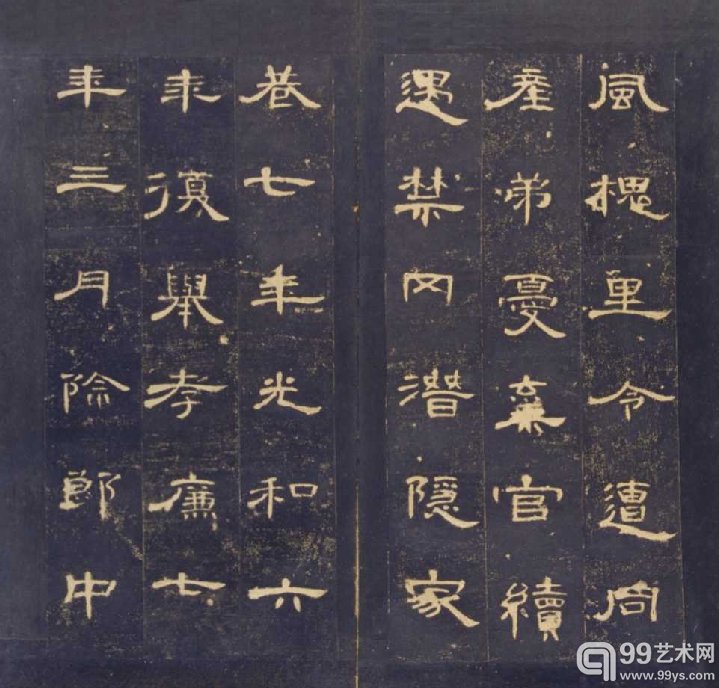 風槐里令遭同
産弟憂棄官續
遇禁网潛隱家
巷七年光和六
年復舉孝廉七
年三月除郎中
99艺术网
www.99ys.com